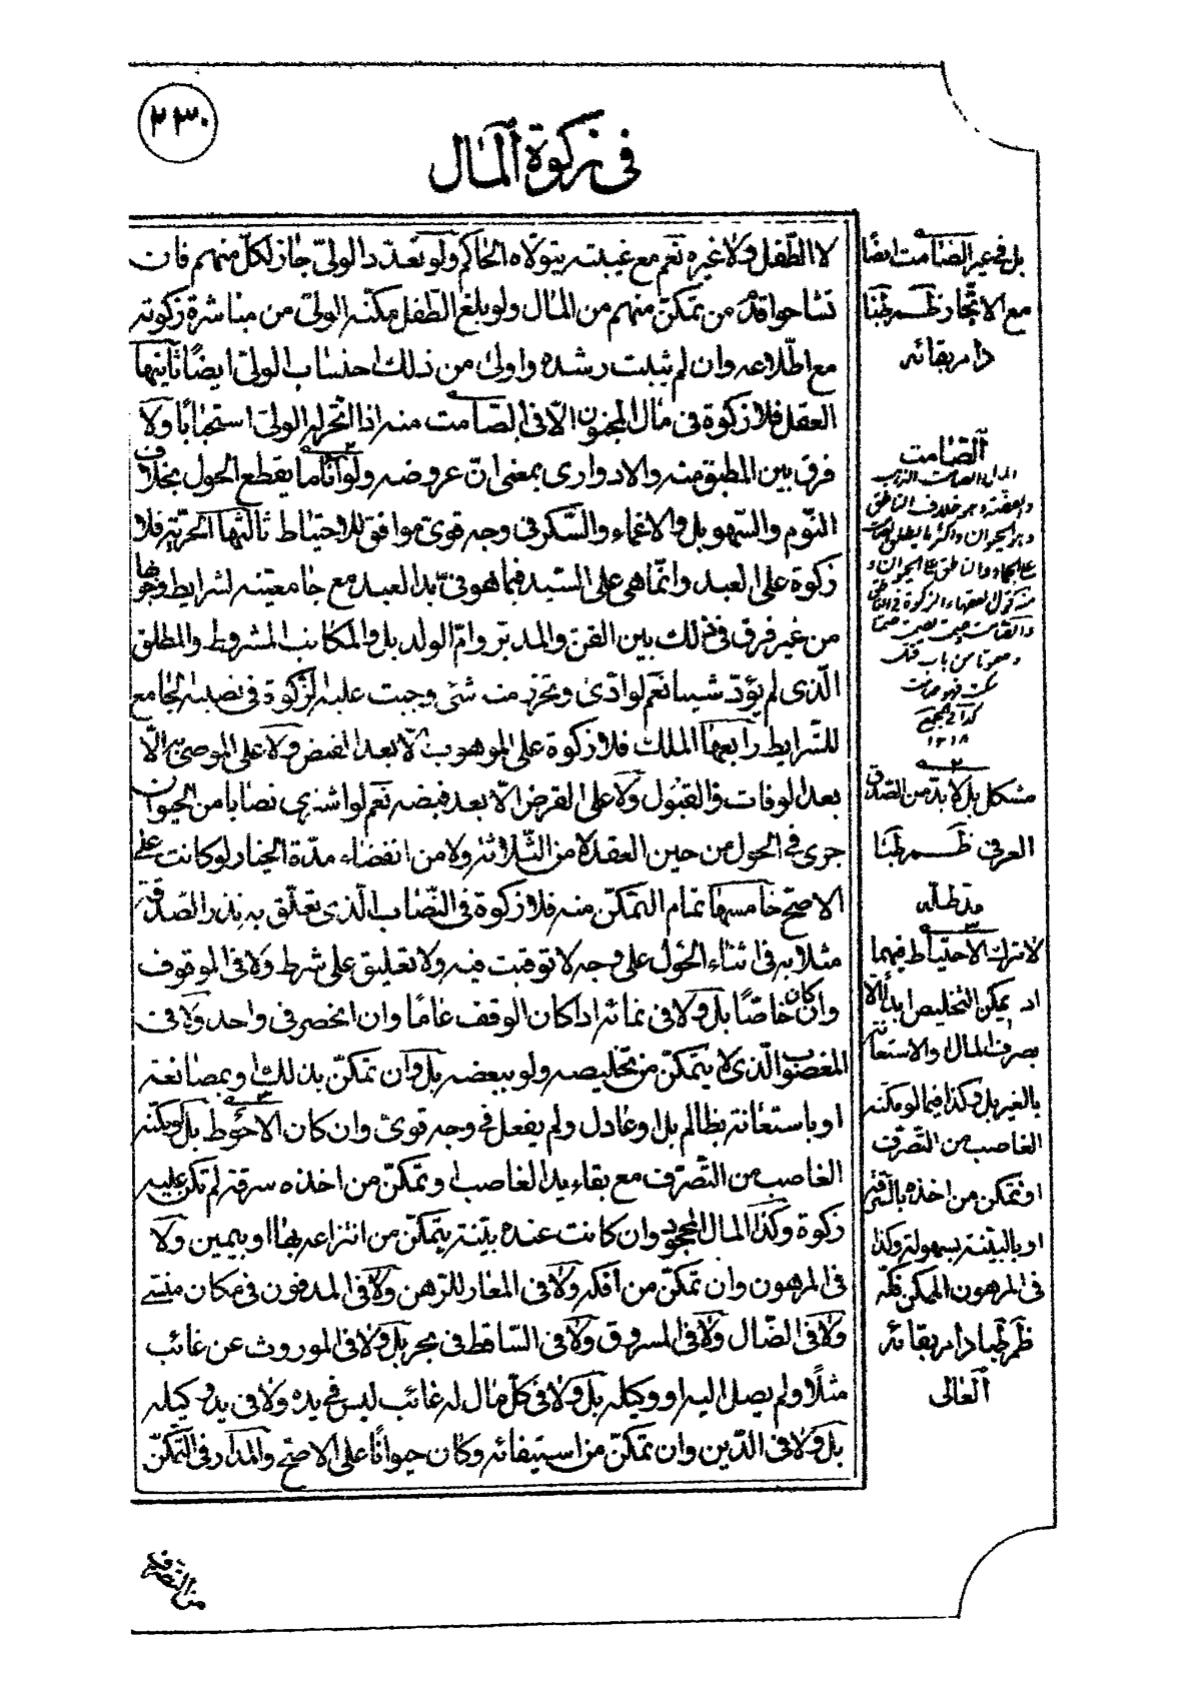 ٢٣٠
في زكوة المال
لا الطّفل ولا غيره نعم مع غيبته يتولاه الحاكم ولو تعدّد الولىّ جاز لكلّ منهم فان
تشاحوا قدّم من تمكّن منهم من المال ولو بلغ الطّفل مكّنه الولىّ من مباشرة زكوته
مع اطّلاعه وان لم يثبت رشده واولى من ذلك احتساب الولىّ ايضًا ثانيها
العقل فلا زكوة فى مال المجنون الّا فى الصّامت منه اذا اتّجر له الولىّ استحبابًا ولا
فرق بين المطبق منه والادوارى بمعنى انّ عروضه ولو انًا ما يقطع الحول بخلاف
النّوم والسّهو بل والاغماء والسّكر فى وجه قوىّ موافق للاحتياط ثالثها الحرّيّة فلا
زكوة على العبد وانّما هى على السّيد فيما هو فى يد العبد مع جامعيّته لشرايط وجوبها
من غير فرق فى ذلك بين القنّ والمدبّر وامّ الولد بل والمكاتب المشروط والمطلق
الّذى لم يؤدّ شيئا نعم لو ادّى وتحرّر منه شئ وجبت عليه الزّكوة فى نصيبه الجامع
للشّرايط رابعها الملك فلا زكوة على الموهوب الّا بعد القبض ولا على الموصى به الّا
بعد الوفات والقبول ولا على القرض الّا بعد قبضه نعم لو اشترى نصابا من الحيوان
جرى فى الحول من حين العقد لا من الثّلاثة ولا من انقضاء مدّة الخيار لو كانت على
الاصحّ خامسها تمام التمكّن منه فلا زكوة فى النّصاب الّذى تعلّق به نذر الصّدقة
مثلا به فى اثناء الحول على وجه لا توقيت فيه ولا تعليق على شرط ولا فى الموقوف
وان كان خاصًّا بل ولا فى نمائه اذا كان الوقف عامًا وان انحصر فى واحد ولا فى
المغصوب الّذى لا يتمكّن من تخليصه ولو ببعضه بل وان تمكّن بذلك او بمصانعة
او باستعانة بظالم بل او عادل ولم يفعل فى وجه قوىّ وان كان الاحوط بل لو مكّنه
الغاصب من التّصرّف مع بقاء يد الغاصب او تمكّن من اخذه سرقة لم تكن عليه
زكوة وكذا المال المجحود وان كانت عنده بيّنة يتمكّن من انتزاعه بها او بيمين ولا
فى المرهون وان تمكّن من افكّه ولا فى المعار للرّهن ولا فى المدفون فى مكان منسىّ
ولا فى الضّال ولا فى المسروق ولا فى السّاقط فى بحر بل ولا فى الموروث عن غائب
مثلًا ولم يصل اليه او وكيله بل ولا فى كلّ مال له غائب ليس فى يده ولا فى يد وكيله
بل ولا فى الدّين وان تمكّن من استيفائه وكان حيوانًا على الاصحّ والمدار فى التّمكّن
من التصرف
بل فى غير الصّامت ايضًا
مع الاتّجار ظـم طبا
دام بقائه
الصّامت
المال الصامت الذهب
والفضة وهو خلاف الناطق
وهو الحيوان واكثر ما يطلق الصامت
على الجماد والناطق على الحيوان
منه قول الفقهاء الزكوة فى الناطق
والصامت صمت يصمت صمتا
وصموتا من باب قتل
سكت فهو صامت
كذا فى المجمع
١٢١٨
٢
مشكل بل لا بدّ من الصّدق
العرفى ظـم طبا
مدّ ظلّه
٣
لا تترك الاحتياط فيما
اذ يمكن التخليص ابدا الّا
بصرف المال او الاستعانة
بالغير بل وكذا فيما لو مكنه
الغاصب من التّصرّف
او تمكن من اخذه بالسّرقة
او بالبيّنة بسهولة وكذا
فى المرهون الممكن فكّه
ظم طبا دام بقائه
العالى